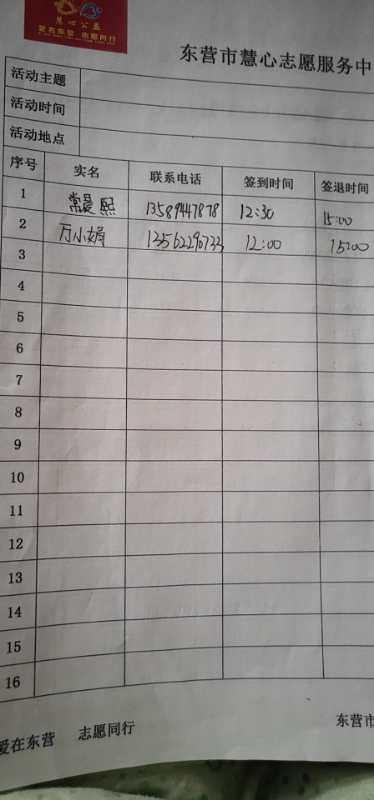 慧心公益
爱在东营 志愿同行
东营市慧心志愿服务中
活动主题
活动时间
活动地点
序号 实名 联系电话 签到时间 签退时间
1 常晨熙 13589447878 12:30 15:00
2 万小娟 13562290733 12:00 15:00
3
4
5
6
7
8
9
10
11
12
13
14
15
16
爱在东营 志愿同行 东营市